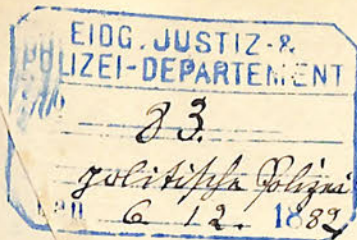 EIDG. JUSTIZ- &
POLIZEI-DEPARTEMENT
83.
politische Polizei
6. 12. 1889